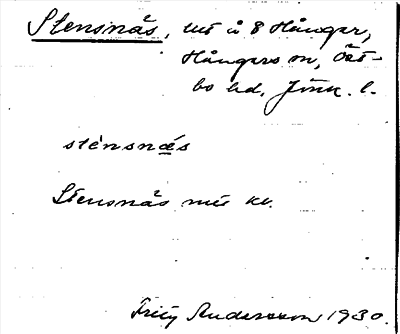 Stensnäs, ut å 8 Hånger,
Hångers sn, Öst-
bo hd, Jönk. l.
stènsnæ̀s
Stensnäs
Fritz Andersson 1930.